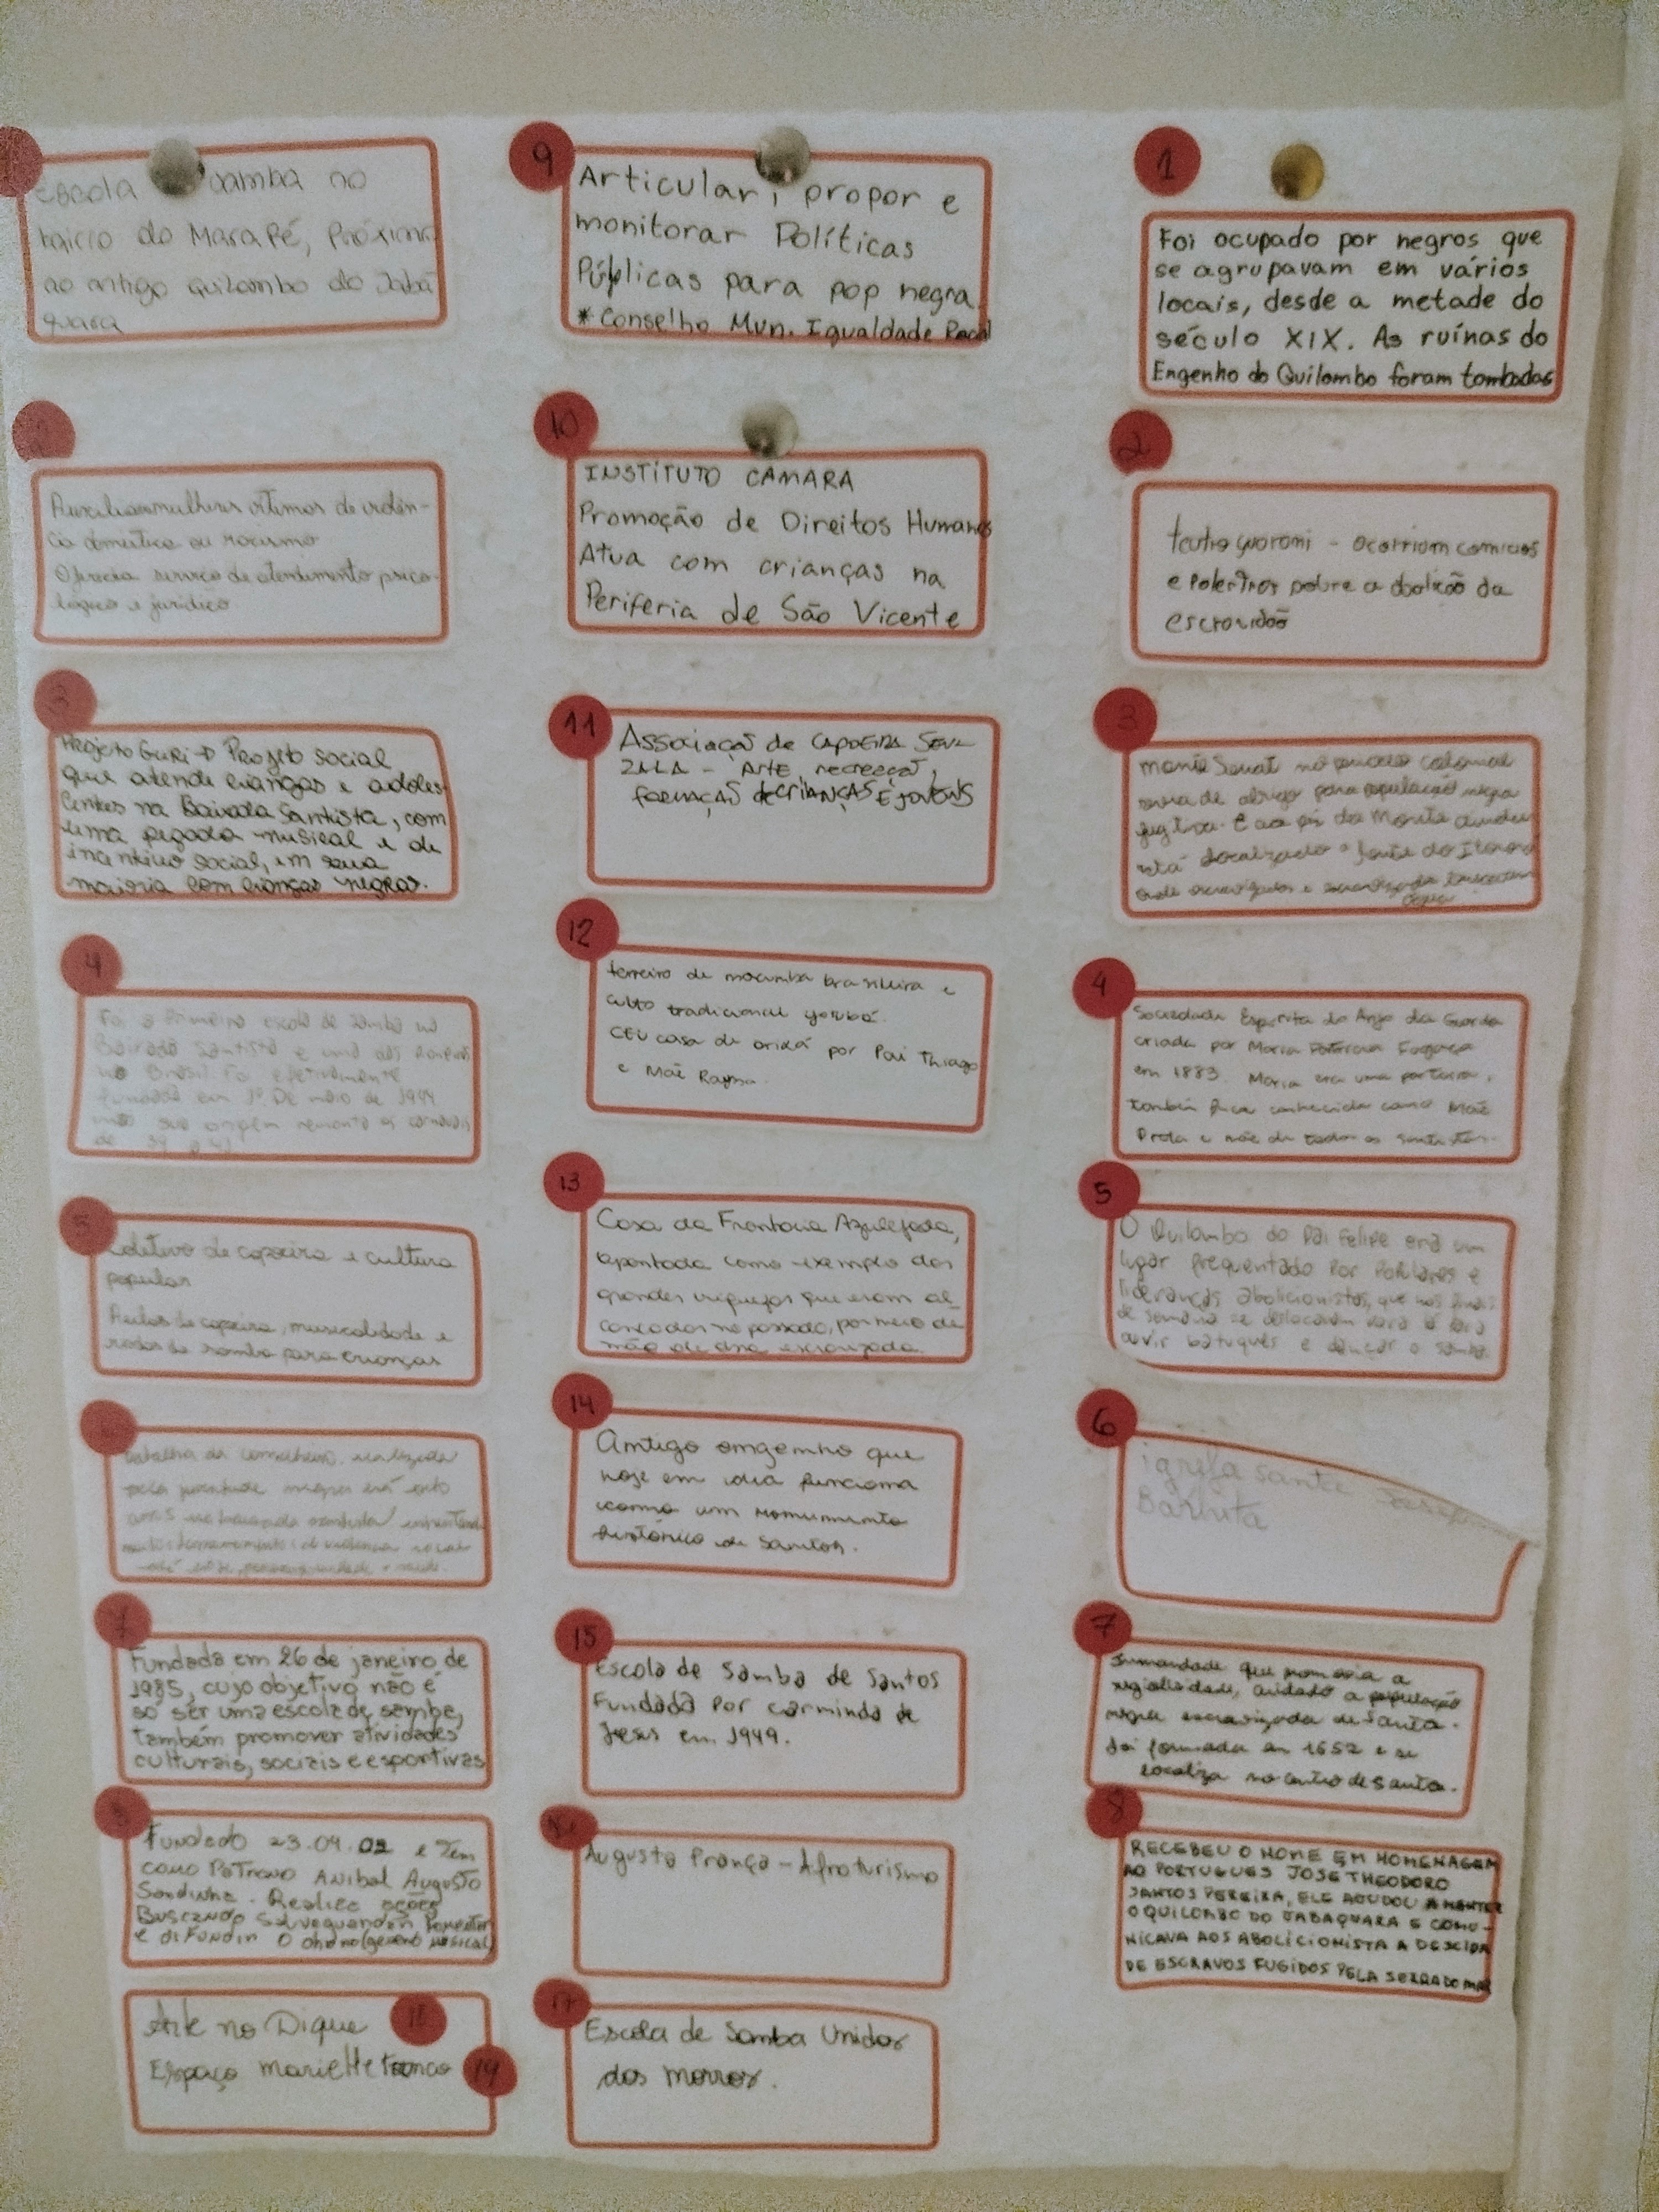 Escola samba no
bairro do Marapé, Próximo
ao antigo quilombo do Jaba
quara
2
Auxiliam mulheres vítimas de violên-
cia doméstica ou racismo
Oferecia serviço de atendimento psico-
lógico e jurídico
3
Projeto Guri → Projeto social
que atende crianças e adoles
centes na Baixada Santista, com
uma pegada musical e de
incentivo social, em sua
maioria com crianças negras.
4
Foi a Primeira escola de samba na
Baixada Santista e uma das
no Brasil. Foi efetivamente
fundada em 1º De maio de 1944
mas sua origem remonta os carnavais
de 39
5
Coletivo de capoeira e cultura
popular
Aulas de capoeira, musicalidade e
rodas de samba para crianças
Batalha da Conselheiro, realizada
pela juventude negra
7
Fundada em 26 de janeiro de
1985, cujo objetivo não é
só ser uma escola de samba,
também promover atividades
culturais, sociais e esportivas
8
Fundado 23.04.02 e Tem
como Patrono Anibal Augusto
Sardinha. Realiza ações
Buscando Salvaguardar, Fomentar
e difundir o choro (gênero musical)
Arte no Dique 18
Espaço Marielle Franco 19
9
Articular, propor e
monitorar Políticas
Públicas para pop negra
* Conselho Mun. Igualdade Racial
10
INSTITUTO CAMARA
Promoção de Direitos Humanos
Atua com crianças na
Periferia de São Vicente
11
Associação de CAPOEIRA SEN
ZALA - ARTE, recreação,
FORMAÇÃO de CRIANÇAS E JOVENS
12
terreiro de macumba brasileira e
culto tradicional yorubá.
CEU casa de orixá por Pai Thiago
e Mãe
13
Casa da Frontaria Azulejada,
apontada como exemplo das
grandes riquezas que eram al-
cançadas no passado, por meio de
mão de obra escravizada.
14
Antigo engenho que
hoje em dia funciona
como um monumento
histórico de Santos.
15
Escola de Samba de Santos
Fundada Por Carminda de
Jesus em 1949.
16
Augusta França - Afroturismo
17
Escola de Samba Unidos
dos Morros.
1
Foi ocupado por negros que
se agrupavam em vários
locais, desde a metade do
século XIX. As ruínas do
Engenho do Quilombo foram tombadas
2
teatro guarani - ocorriam comicios
e Palestras sobre a abolição da
escravidão
3
Monte Serrat no período colonial
servia de abrigo para população negra
fugitiva. E aos pés do Monte
está localizado a fonte do Itororó
onde escravizados e escravizadas
4
Sociedade Espírita do Anjo da Guarda
criada por Maria Patricia Fogaça
em 1883. Maria era uma parteira,
também fica conhecida como Mãe
Preta e mãe de todos os santistas.
5
O Quilombo do Pai Felipe era um
lugar frequentado Por Populares e
lideranças abolicionistas, que nos finais
de semana se deslocavam para lá para
ouvir batuques e dançar o samba.
6
igreja santa
Bárbara
7
Irmandade que promovia a
religiosidade, cuidado a população
negra escravizada de Santos.
foi formada em 1652 e se
localiza no centro de Santos.
8
RECEBEU O NOME EM HOMENAGEM
AO PORTUGUES JOSE THEODORO
SANTOS PEREIRA, ELE AJUDOU A MANTER
O QUILOMBO DO JABAQUARA E COMU-
NICAVA AOS ABOLICIONISTA A DESCIDA
DE ESCRAVOS FUGIDOS PELA SERRA DO MAR